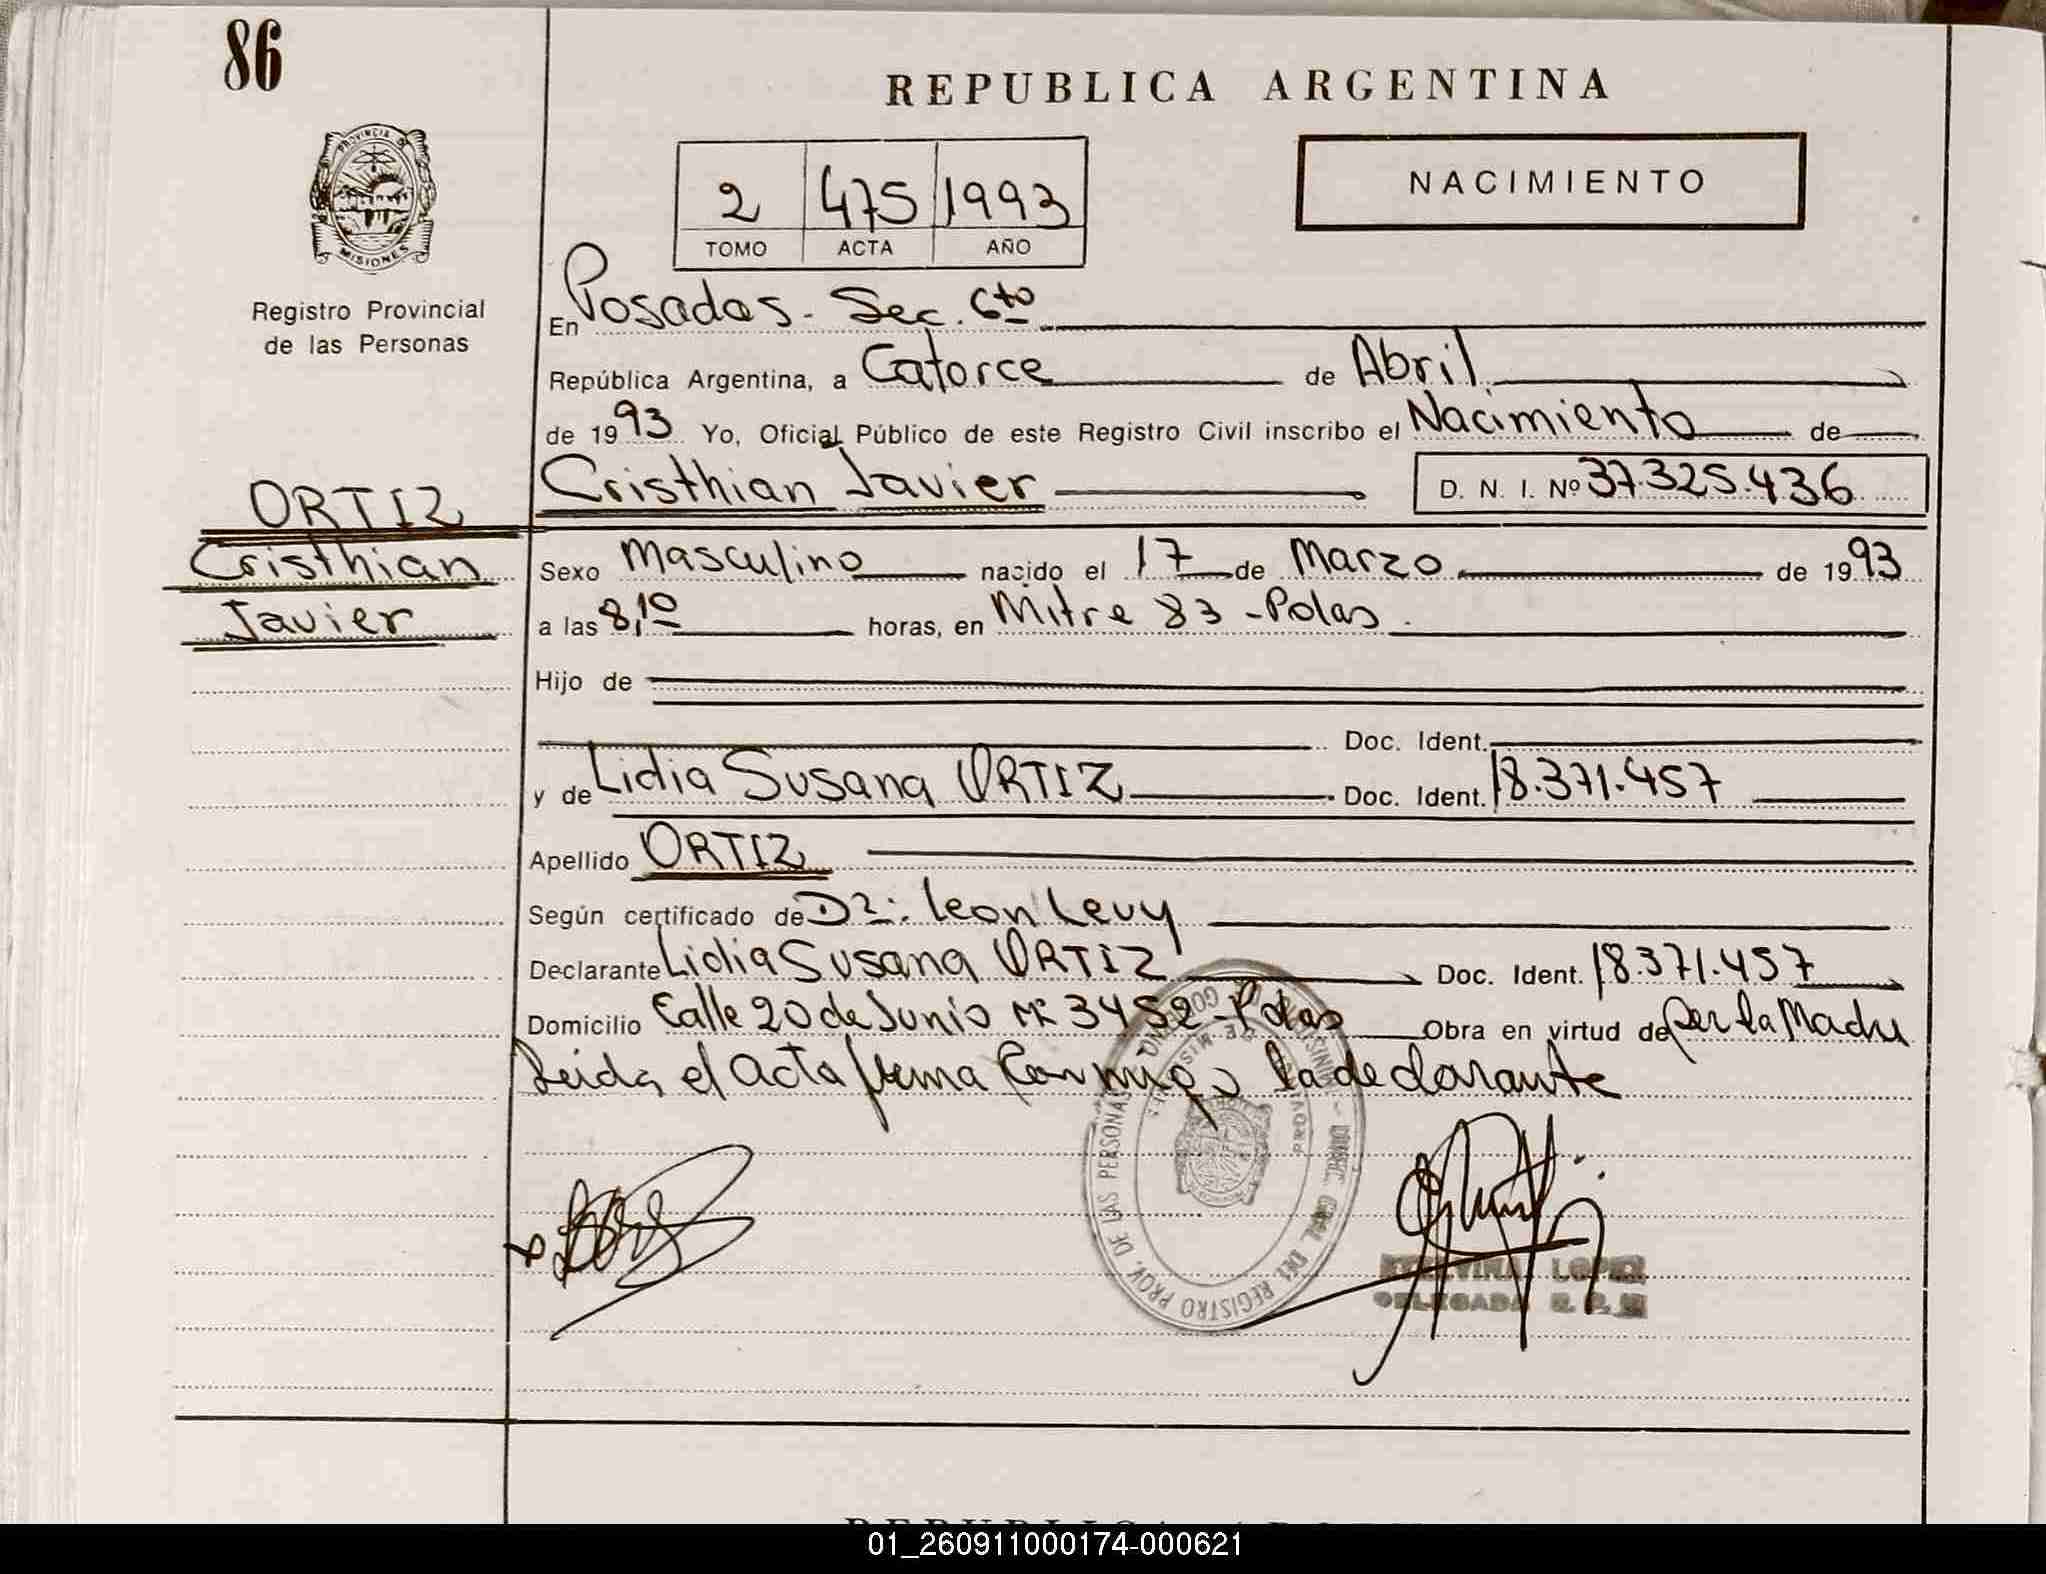 86
REPUBLICA ARGENTINA
NACIMIENTO
2 475 1993
TOMO ACTA AÑO
PROVINCIA DE
MISIONES
Registro Provincial
de las Personas
En Posadas. Sec. 6to
República Argentina, a Catorce de Abril
de 1993 Yo, Oficial Público de este Registro Civil inscribo el Nacimiento de
Cristhian Javier D. N. I. Nº 37.325.436
ORTIZ
Cristhian
Javier
Sexo Masculino nacido el 17 de Marzo de 1993
a las 8,10 horas, en Mitre 83 - Pdas.
Hijo de
Doc. Ident.
y de Lidia Susana ORTIZ Doc. Ident. 18.371.457
Apellido ORTIZ
Según certificado de Dr: Leon Levy
Declarante Lidia Susana ORTIZ Doc. Ident. 18.371.457
Domicilio Calle 20 de Junio Nº 3452 - Pdas Obra en virtud de ser la Madre
Leida el acta firma conmigo la declarante
DIREC. GRAL. DEL REGISTRO PROV. DE LAS PERSONAS
LOPEZ
DELEGADA R. P.
REPUBLICA ARGENTINA
01_260911000174-000621